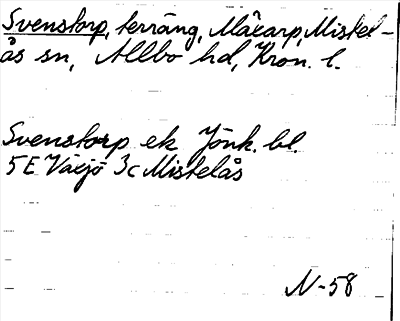 Svenstorp, terräng, Målcarp, Mistel-
ås sn, Allbo hd, Kron. l.
Svenstorp ek Jönk. bl.
5E Växjö 3c Mistelås
N-58